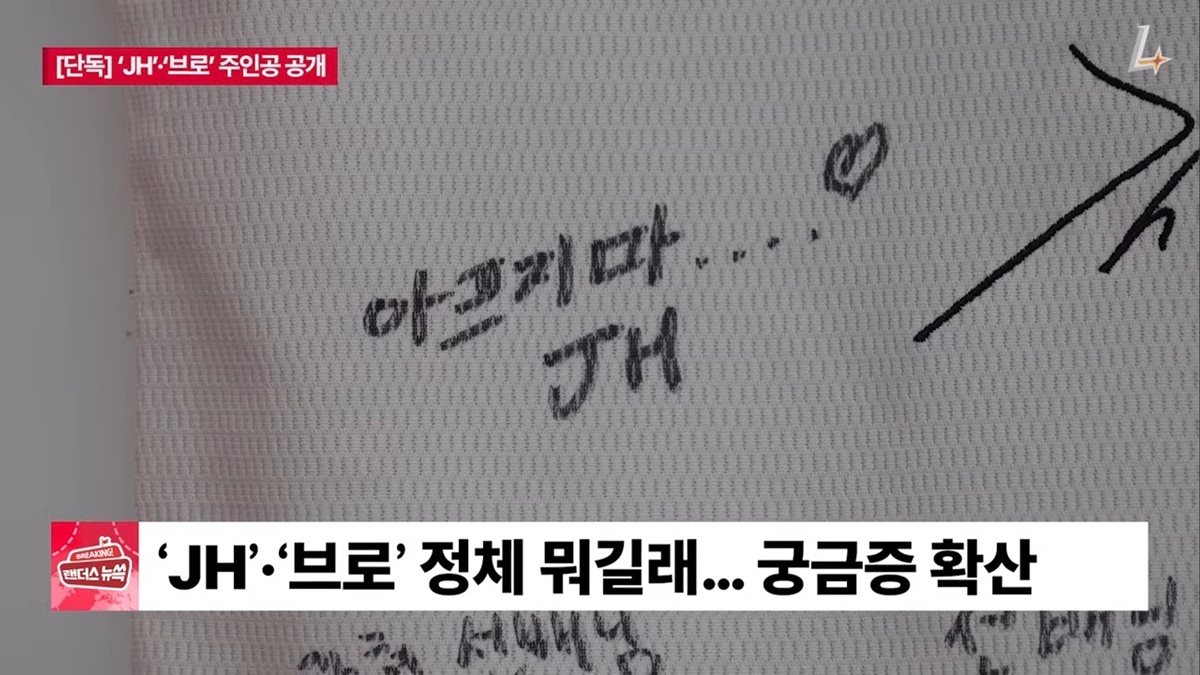 [단독] ‘JH’·‘브로’ 주인공 공개
아프지마....♡
JH
BREAKING!
랜더스 뉴쓱
‘JH’·‘브로’ 정체 뭐길래... 궁금증 확산
선배님
선배님